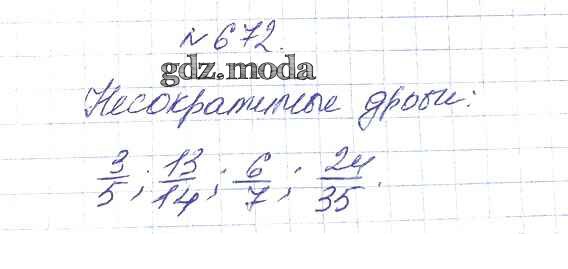 №672.
gdz.moda
Несократимые дроби:
3/5; 13/14; 6/7; 24/35.